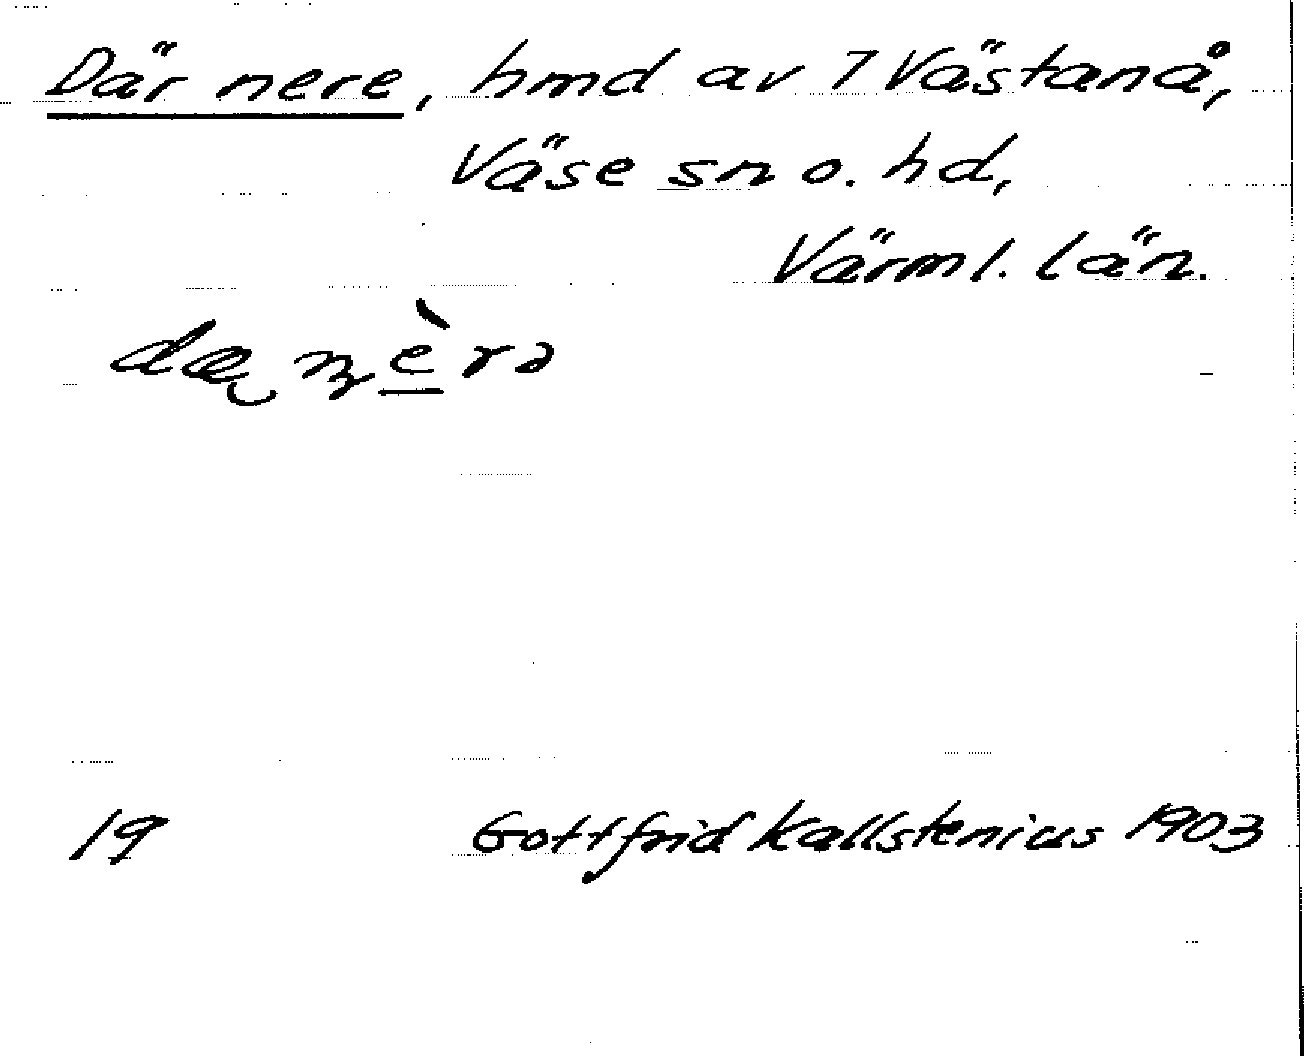 Där nere, hmd av 7 Västanå,
Väse sn o. hd,
Värml. län.
19 Gottfrid Kallstenius 1903